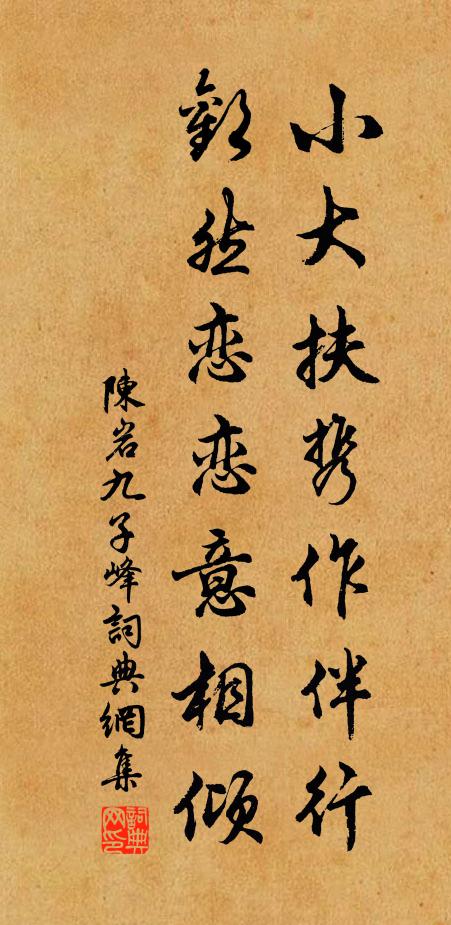 小大扶携作伴行
歡然恋恋意相倾
陳岩九子峰詞典網集
詞典网印